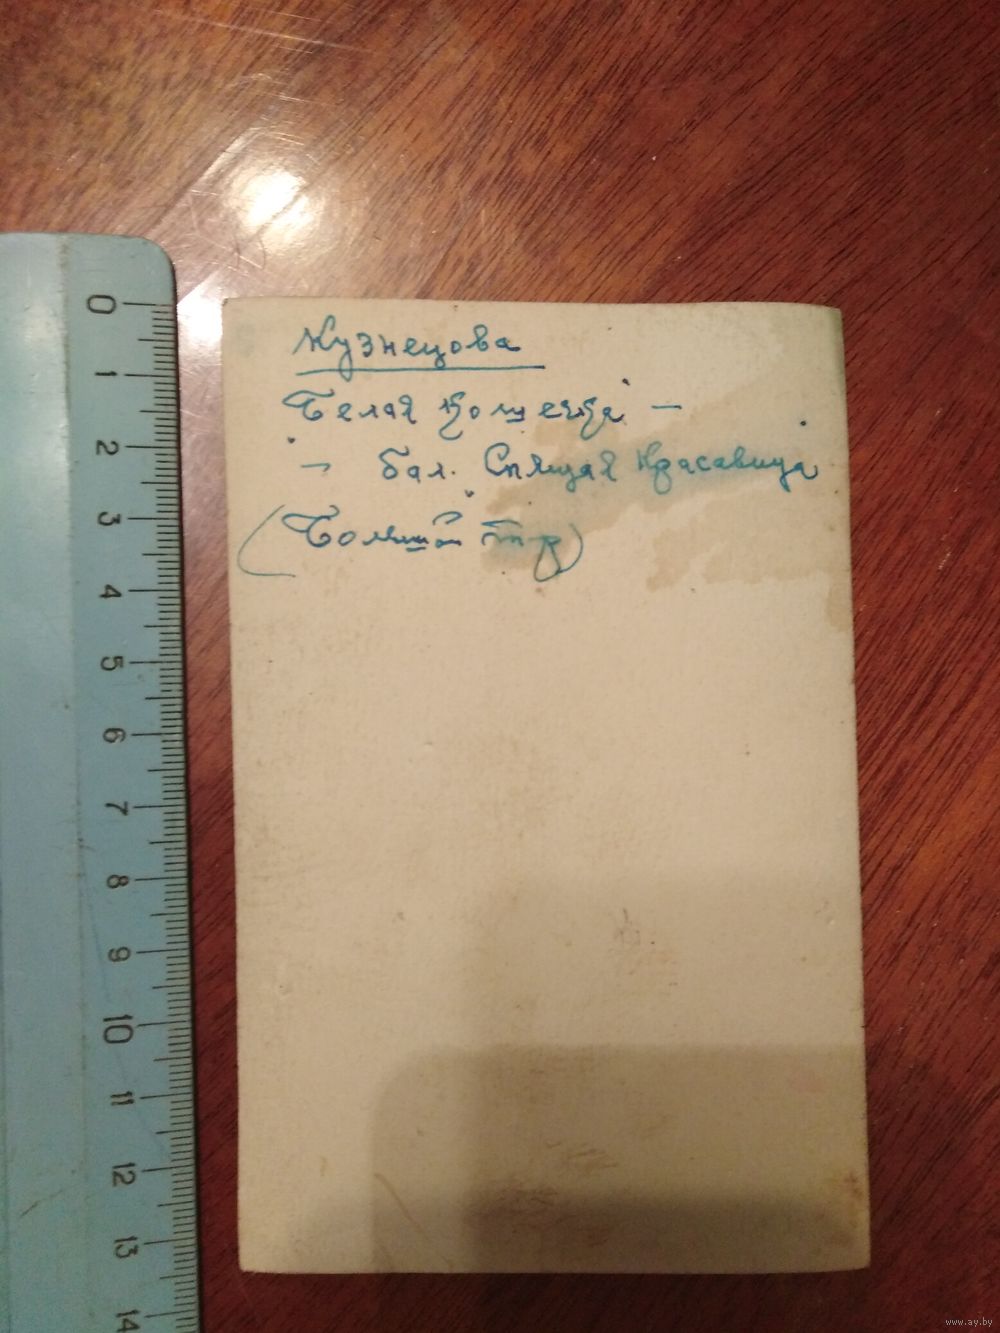 Кузнецова
Белая кошечка —
— бал. Спящая Красавица
(Большой т-р)
0
1
2
3
4
5
6
7
8
9
10
11
12
13
14
www.ay.by